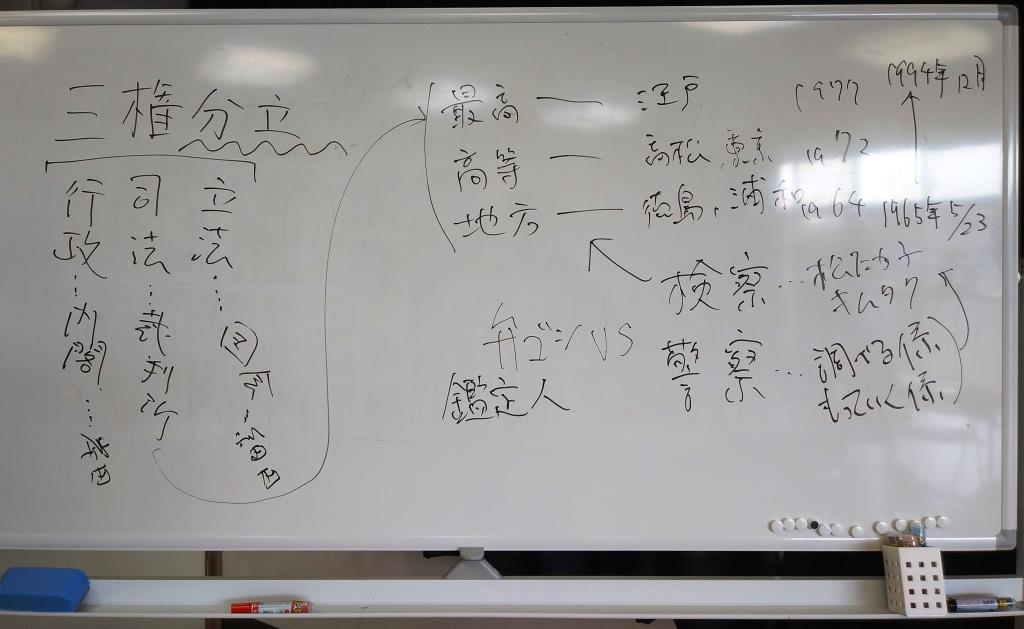 三権分立
行政…内閣…岸田
司法…裁判所
立法…国会…
最高 ― 江戸 1977 1994年12月
高等 ― 高松 東京 1972
地方 ― 徳島、浦和 1964 1965年5/23
検察…松たか子
キムタク
弁ゴシVS
警察…調べる係
もっていく係
鑑定人